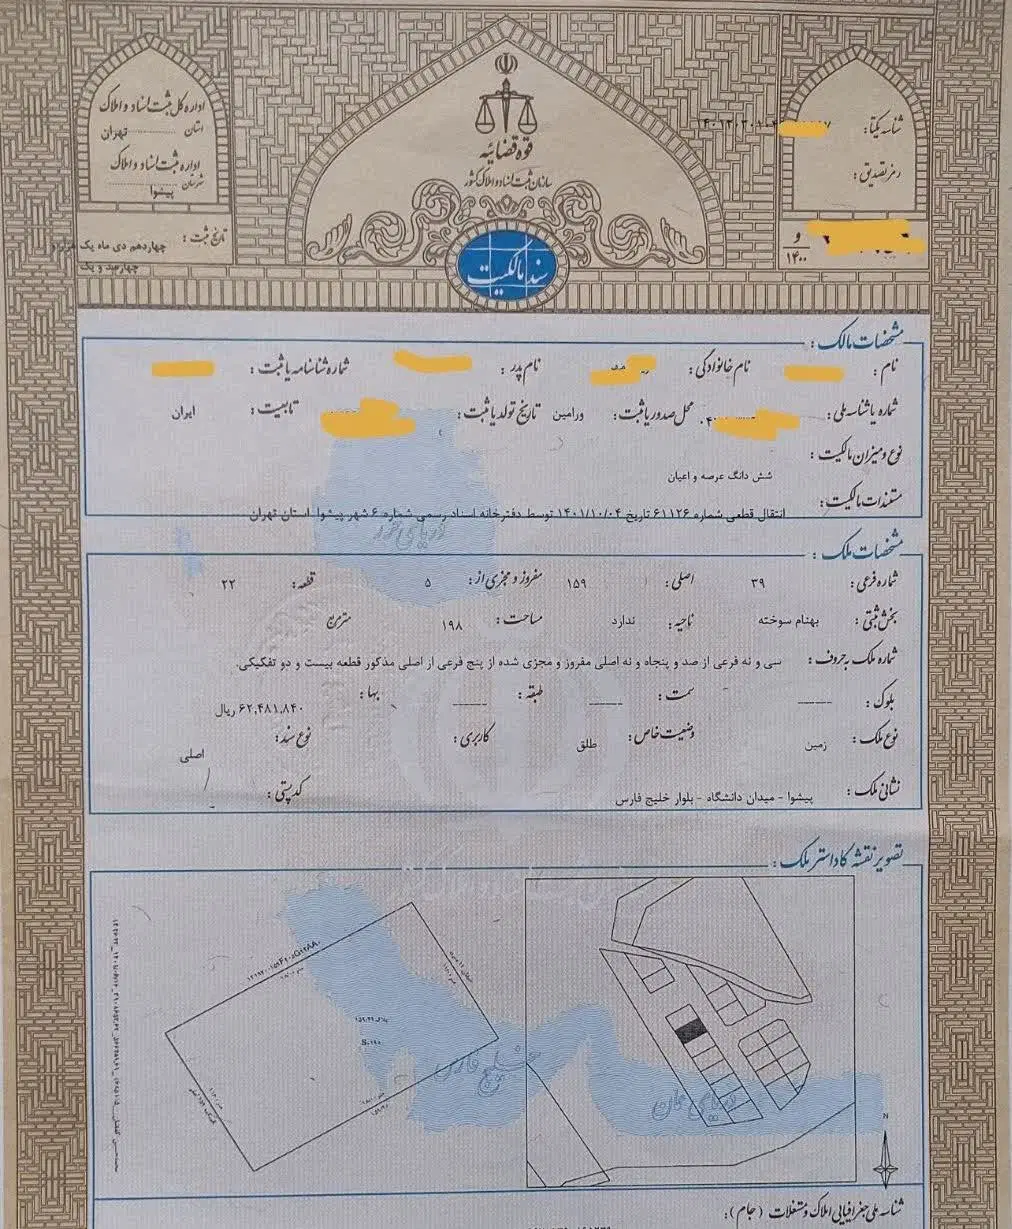 اداره کل ثبت اسناد و املاک
استان تهران
اداره ثبت اسناد و املاک
شهرستان
پیشوا
تاریخ ثبت : چهاردهم دی ماه یک هزار و
چهارصد و یک
قوه قضائیه
سازمان ثبت اسناد و املاک کشور
سند مالکیت
شناسه یکتا:
رمز تصدیق :
و
۱۴۰۰
مشخصات مالک :
نام : نام خانوادگی : نام پدر : شماره شناسنامه یا ثبت :
شماره یا شناسه ملی : محل صدور یا ثبت : ورامین تاریخ تولد یا ثبت : تابعیت : ایران
نوع و میزان مالکیت :
شش دانگ عرصه و اعیان
مستندات مالکیت :
انتقال قطعی شماره ۶۱۱۲۶ تاریخ ۱۴۰۱/۱۰/۰۴ توسط دفترخانه اسناد رسمی شماره ۶ شهر پیشوا استان تهران
دریای خزر
مشخصات ملک :
شماره فرعی : ۳۹ اصلی : ۱۵۹ مفروز و مجزی از : ۵ قطعه : ۲۲
بخش ثبتی : بهنام سوخته ناحیه : ندارد مساحت : ۱۹۸ مترمربع
شماره ملک به حروف : سی و نه فرعی از صد و پنجاه و نه اصلی مفروز و مجزی شده از پنج فرعی از اصلی مذکور قطعه بیست و دو تفکیکی.
بلوک : ------ سمت : ------ طبقه : ------ بها : ۶۲,۴۸۱,۸۴۰ ریال
نوع ملک : زمین وضعیت خاص : طلق کاربری : نوع سند : اصلی
نشانی ملک : پیشوا - میدان دانشگاه - بلوار خلیج فارس کد پستی :
تصویر نقشه کاداستر ملک :
خلیج فارس
دریای عمان
N
شناسه ملی جغرافیایی املاک و مستغلات (جام) :